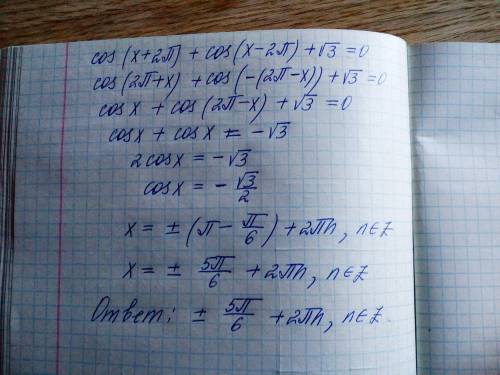 cos(x+2π) + cos(x-2π) + √3 = 0
cos(2π+x) + cos(-(2π-x)) + √3 = 0
cos x + cos(2π-x) + √3 = 0
cos x + cos x = -√3
2 cos x = -√3
cos x = - √3/2
x = ± (π - π/6) + 2πn, n∈Z
x = ± 5π/6 + 2πn, n∈Z
Ответ: ± 5π/6 + 2πn, n∈Z.